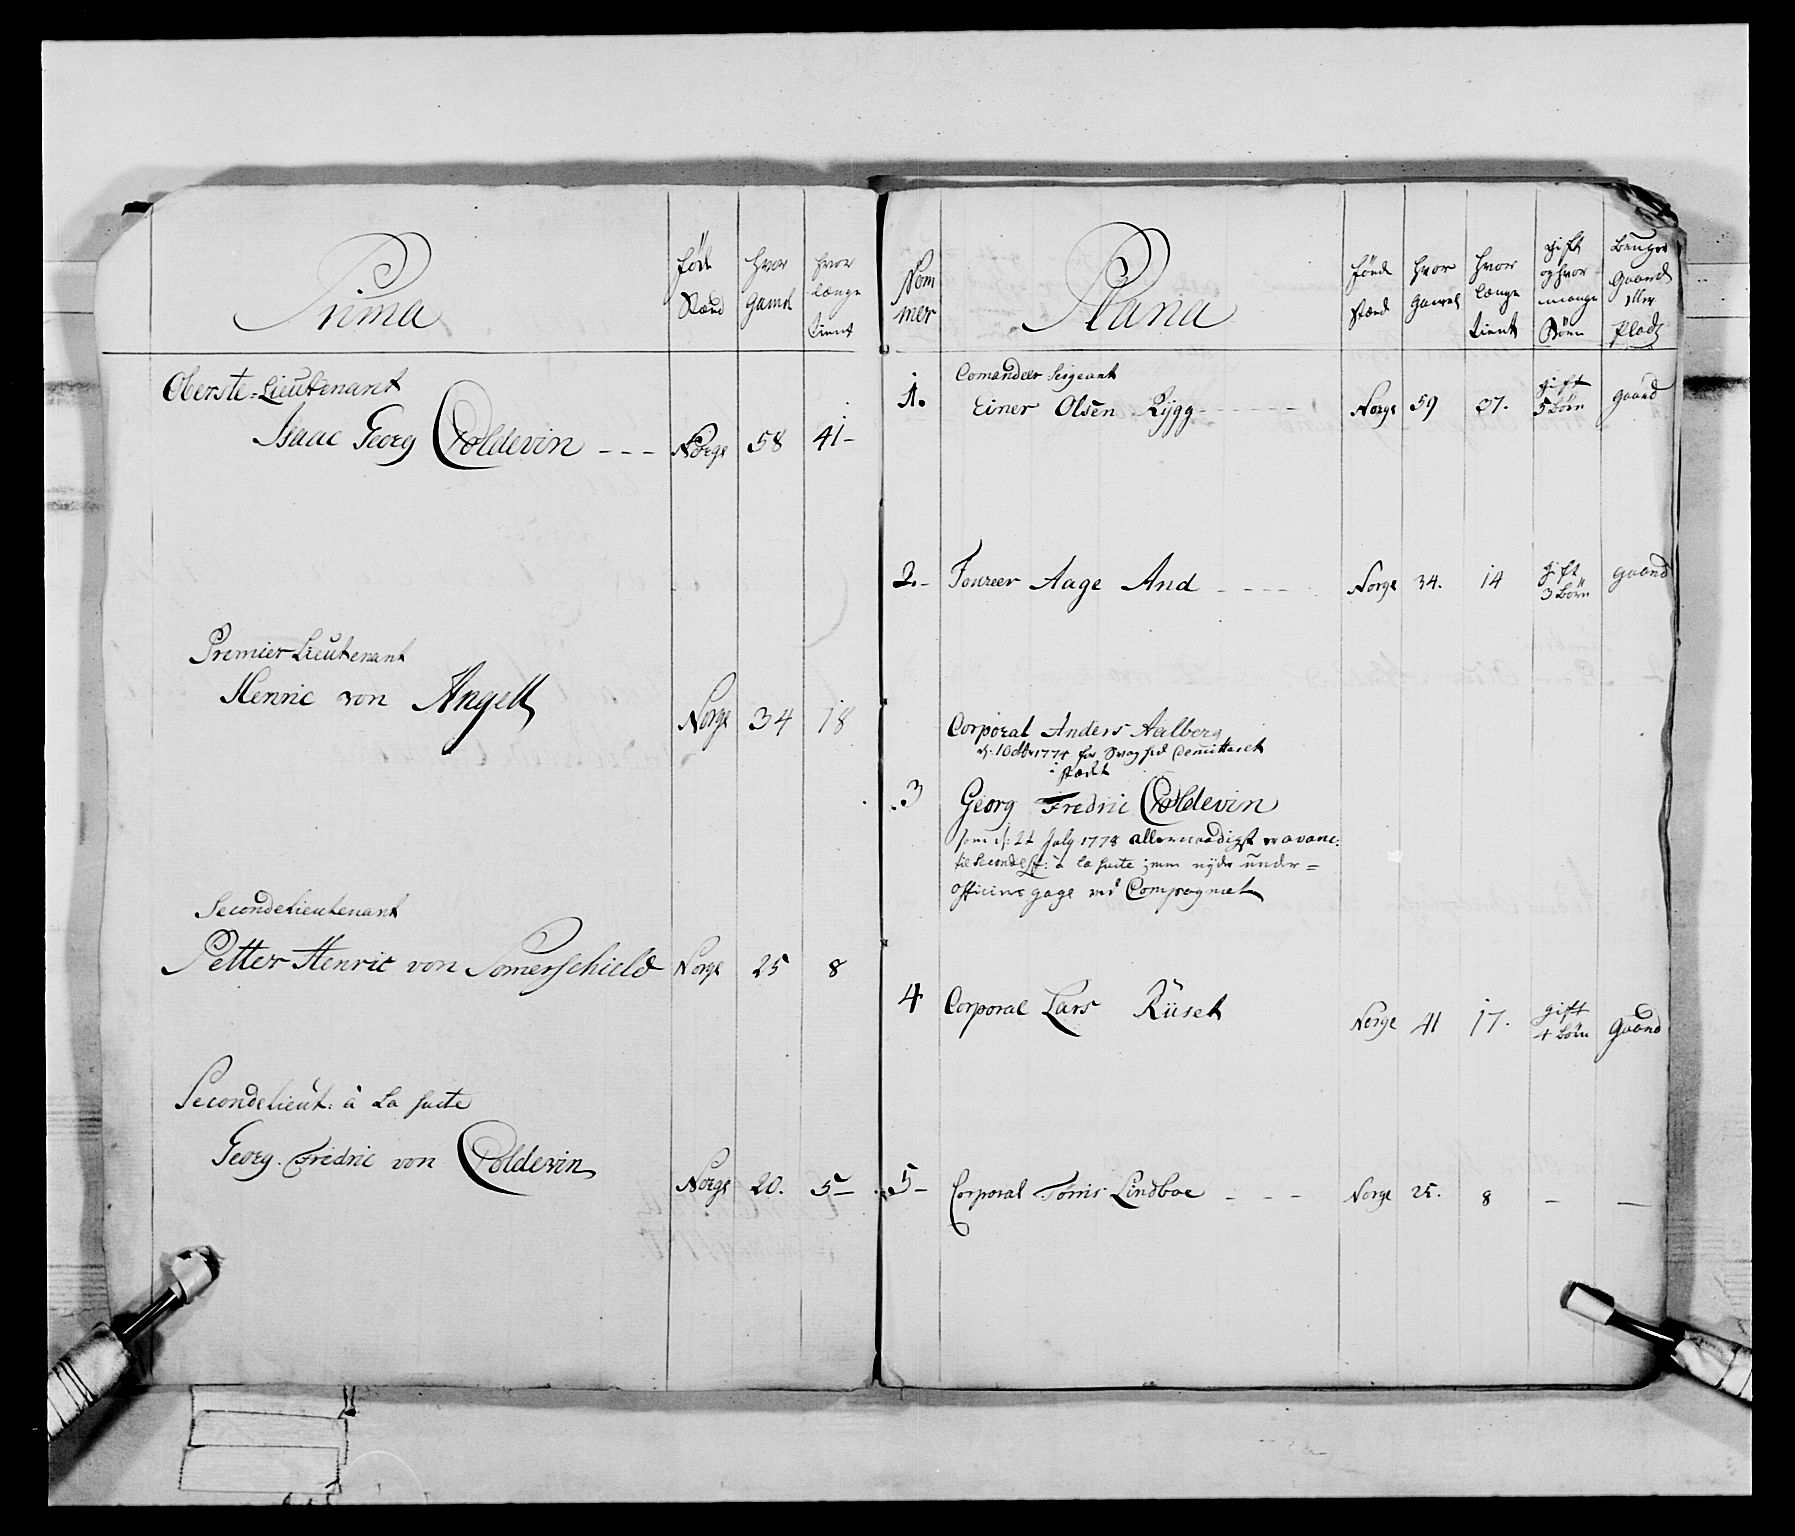 Prima
Föde Stæd
Hvor Gamel
Hvor længe tient
Oberste-Lieutenant
Isaac Georg Coldevin - - - Norge 58 41-
Premier Lieutenant
Henric von Angell Norge 34 18
Secondelieutenant
Petter Henric von Somerschield Norge 25 8
Secondelieut: à la suite
Georg Fridric von Coldevin Norge 20. 5-
Nommer
Plana
föde stæd
hvor gamel
hvor længe tient
gift og hvor mange Børn
bruger Gaard eller Plads
1. Comandeer Sergeant
Einer Olsen Rÿgg - - - - - Norge 59 37. gift 5 børn gaard
2.- Foureer Aage And - - - - Norge 34. 14 gift 3 børn gaard
Corporal Anders Aalberg
for Svaghed Demitteret
i stædet
3 Georg Fredric Coldevin
som d: 22 July 1778 allernaadigst er avanc:
til Second Lt: à la suite men nyder under=
officiers gage ved Compagniet
4 Corporal Lars Rüset Norge 41 17. gift 4 børn gaard
5- Corporal Tørris Lindboe - - - Norge 25. 8 - -